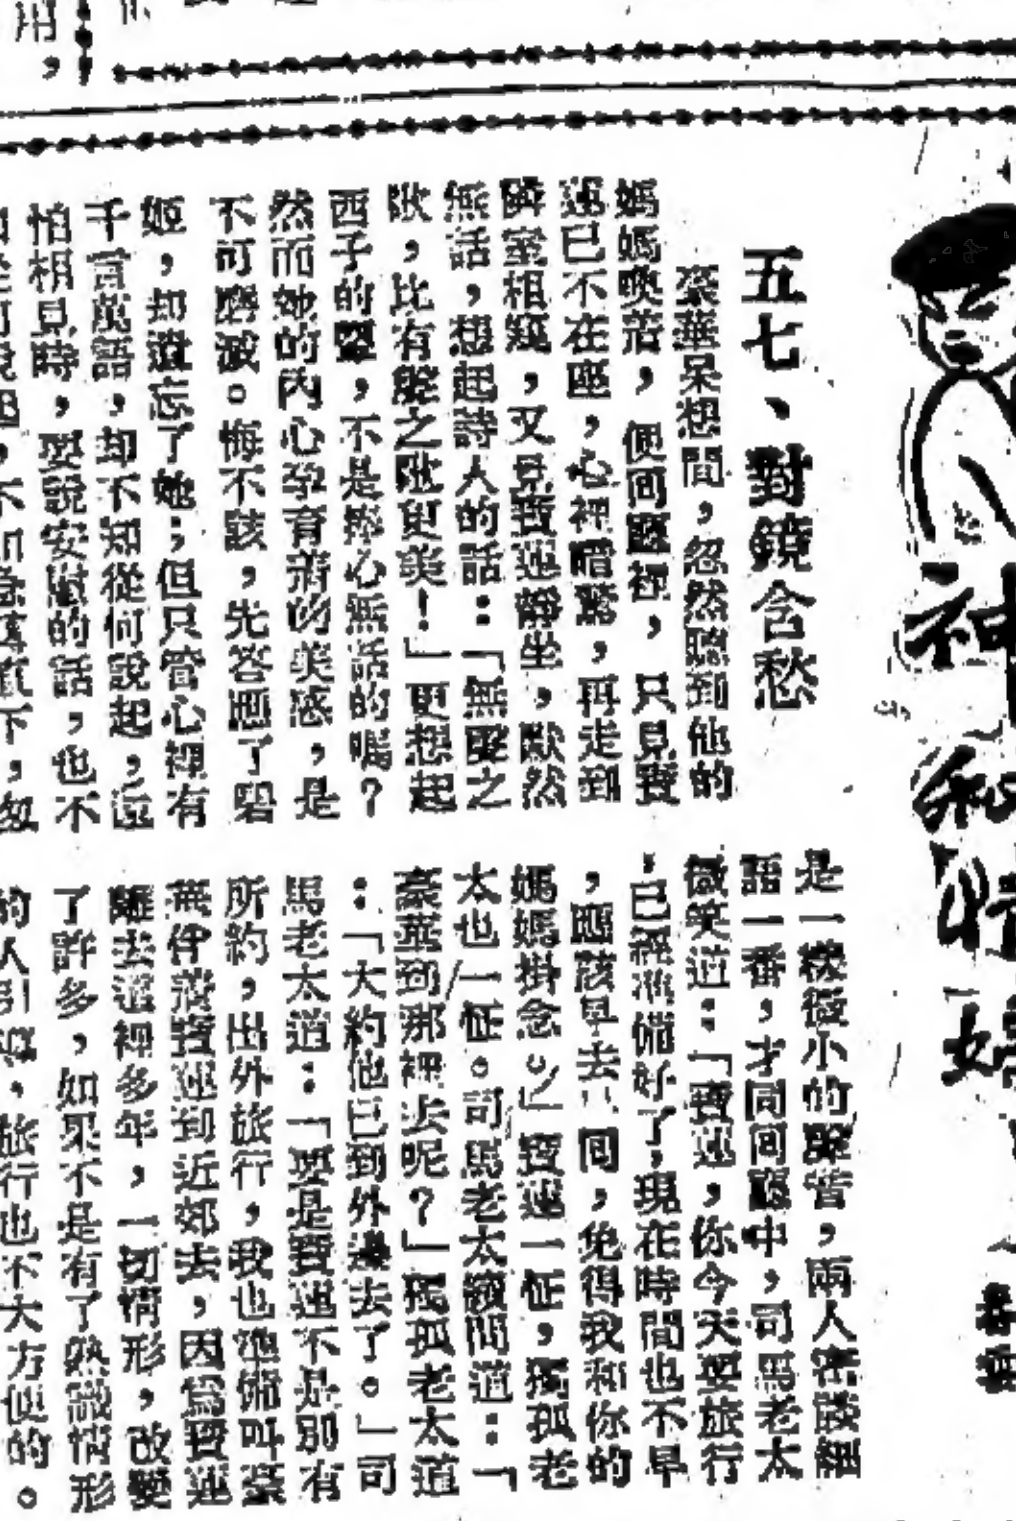 神秘情婦
五七、對鏡含愁
豪華呆想間,忽然聽到他的
媽媽喚若,便回廳裡,只見寶
蓮已不在座,心裡暗驚,再走到
隣室相窺,又見寶蓮靜坐,默然
無話,想起詩人的話:「無聲之
歌,比有聲之歌更美!」更想起
西子的顰,不是捧心無話的嗎?
然而她的內心孕育着的美感,是
不可磨滅。悔不該,先答應了碧
姬,却遺忘了她;但只管心裡有
千言萬語,却不知從何說起,這
怕相見時,要說安慰的話,也不
是一機微小的聲音,兩人密談細
語一番,才同回廳中,司馬老太
微笑道:「寶蓮,你今天要旅行
,已經準備好了,現在時間也不早
,應該早去早回,免得我和你的
媽媽掛念。」寶蓮一怔,獨孤老
太也一怔。司馬老太續問道:「
豪華到那裡去呢?」獨孤老太道
:「大約他已到外邊去了。」司
馬老太道:「要是寶蓮不是別有
所約,出外旅行,我也準備叫豪
華伴着寶蓮到近郊去,因爲寶蓮
離去這裡多年,一切情形,改變
了許多,如果不是有了熟識情形
的人引導,旅行也不大方便的。